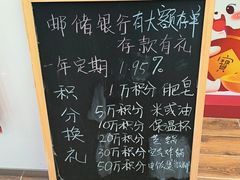 邮储银行有大额存单
存款有礼
一年定期 1.95%
积分换礼
1万积分 肥皂
5万积分 米或油
10万积分 保温杯
20万积分 蒸锅
30万积分 空气炸锅
50万积分